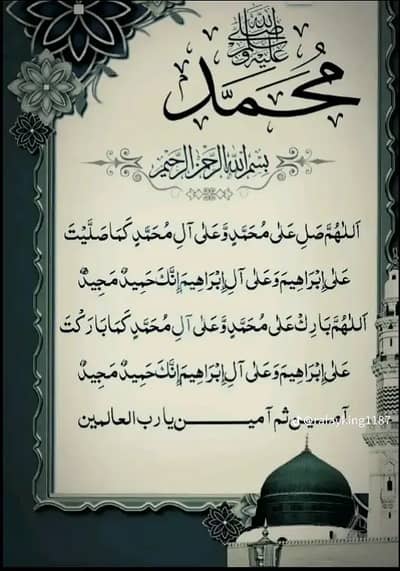 محمد
صلى الله عليه وسلم
بسم الله الرحمن الرحيم
اَللّٰهُمَّ صَلِ عَلٰى مُحَمَّدٍ وَّعَلٰى آلِ مُحَمَّدٍ كَمَا صَلَّيْتَ
عَلٰى اِبْرَاهِيمَ وَعَلٰى آلِ اِبْرَاهِيمَ اِنَّكَ حَمِيدٌ مَجِيدٌ
اَللّٰهُمَّ بَارِكْ عَلٰى مُحَمَّدٍ وَّعَلٰى آلِ مُحَمَّدٍ كَمَا بَارَكْتَ
عَلٰى اِبْرَاهِيمَ وَعَلٰى آلِ اِبْرَاهِيمَ اِنَّكَ حَمِيدٌ مَجِيدٌ
آمين ثم آمين يا رب العالمين